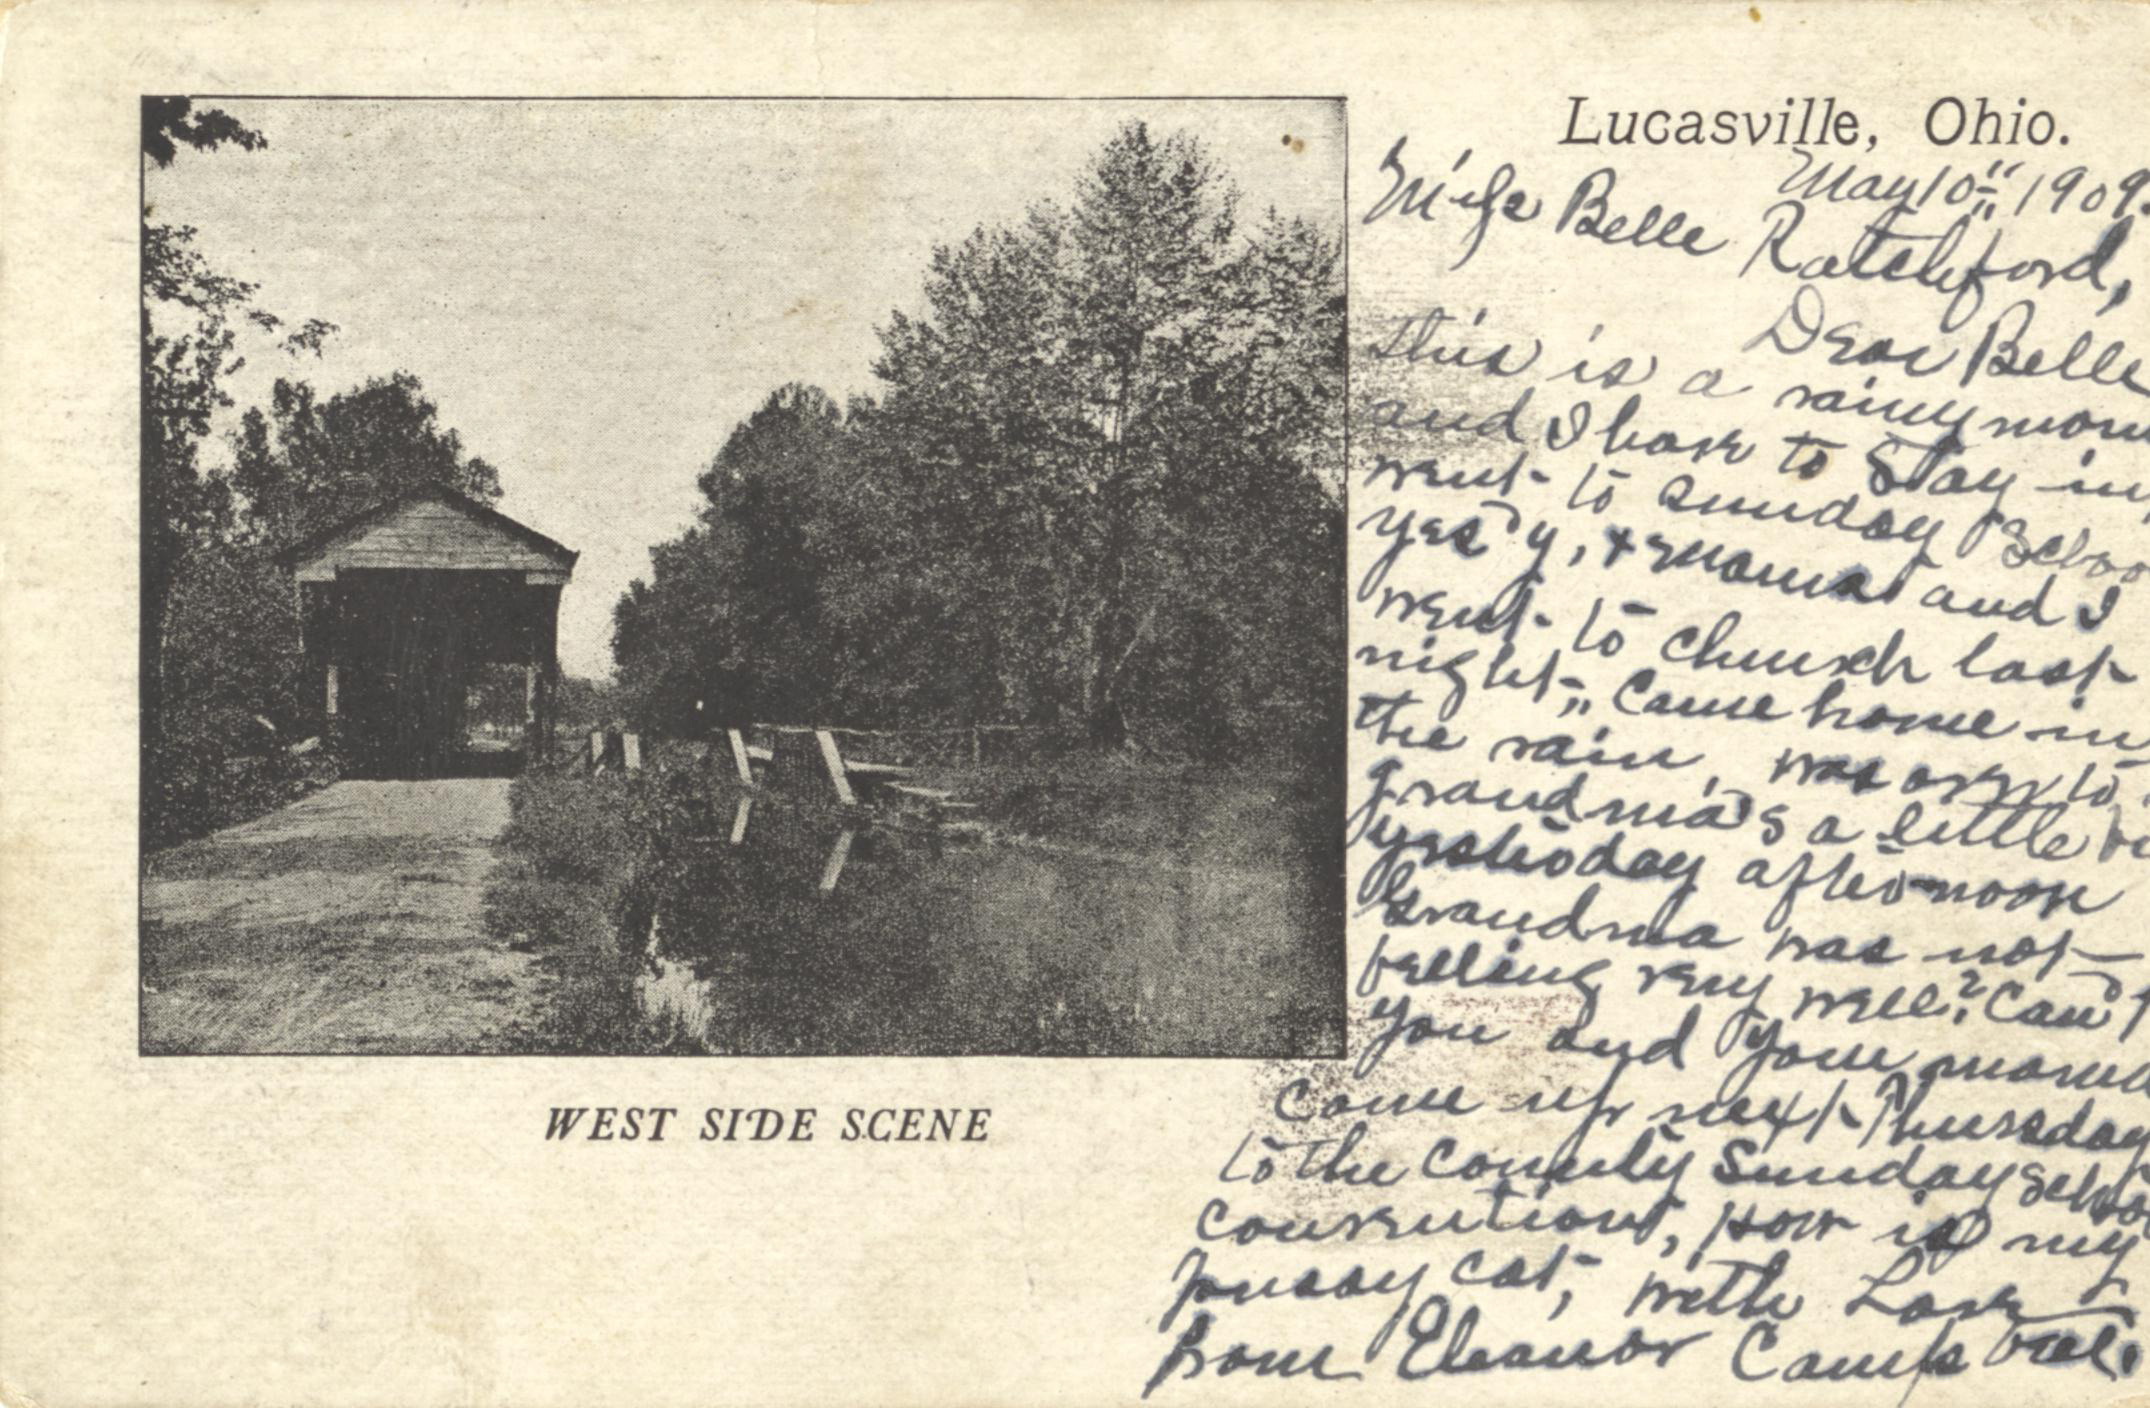 Lucasville, Ohio.
May 10" 1909.
Miss Belle Ratchford,
Dear Belle
this is a rainy morn
and I have to Stay in,
went to Sunday Schoo
yes'y, & Mama and I
went to church last
night, Came home in
the rain, was over to
Grandma's a little
yesterday afternoon
Grandma was not
feeling very well? Can't
you and your mama
come up next Thursday
to the County Sunday Schoo
convention, How is my
pussy cat, with Love
from Eleanor Campbell.
WEST SIDE SCENE